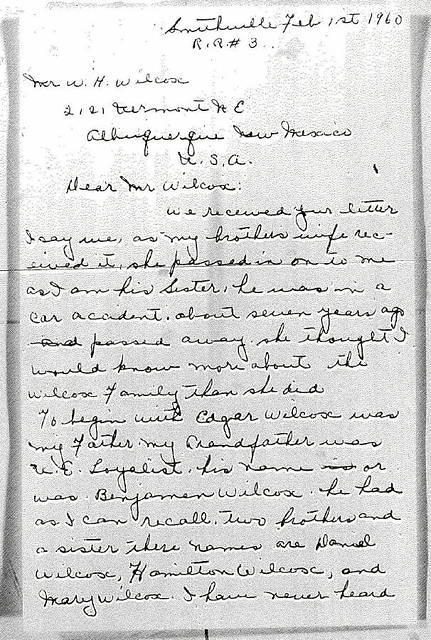 Smithville Feb 1st 1960
R.R# 3..
Mr W. H. Wilcox
2121 Vermont N E
Albuquerque New Mexico
U. S. A.
Dear Mr Wilcox:
We received your letter
I say we, as my brothers wife rec-
eived it, she passed in on to me
as I am his sister, he was in a
car accident. about seven years ago
and passed away. she thought I
would know more about the
Wilcox Family than she did
To begin with Edgar Wilcox was
my Father my Grandfather was
U. E. Loyalist. his name is or
was. Benjamen Wilcox. he had
as I can recall. two brothers and
a sister there names are Daniel
Wilcox, Hamilton Wilcox, and
Mary Wilcox. I have never heard